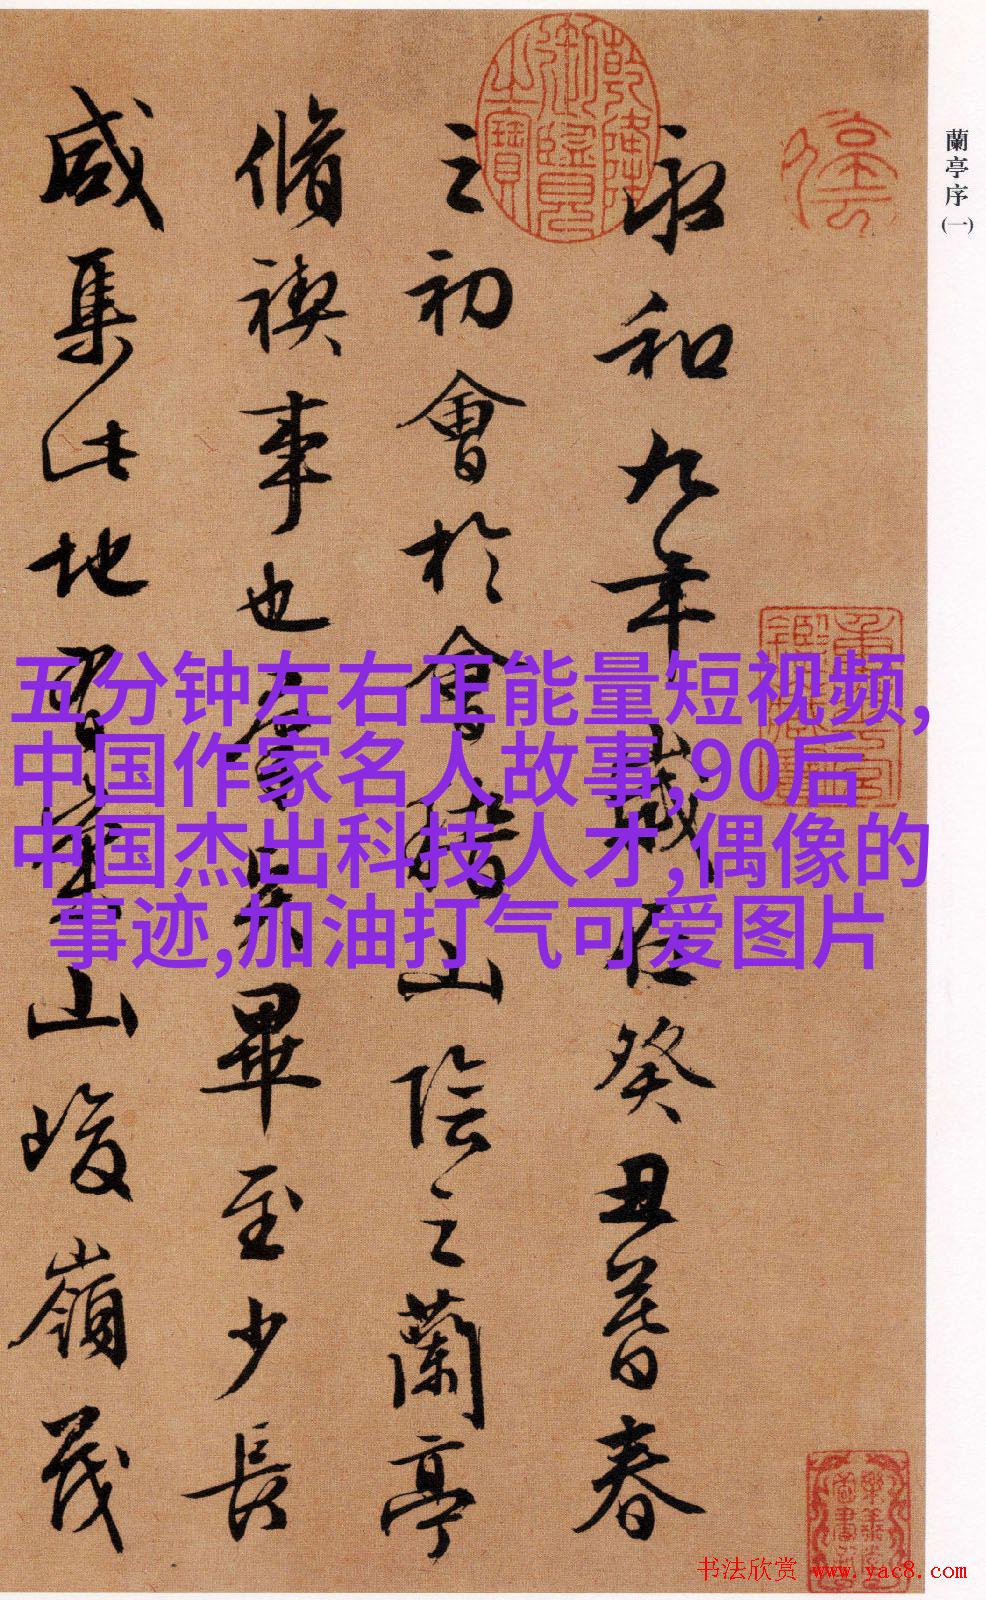 蘭亭序(一)
永和九年歲在癸丑暮春
之初會於會稽山陰之蘭亭
脩禊事也羣賢畢至少長
咸集此地有崇山峻嶺茂
五分钟左右正能量短视频,
中国作家名人故事,90后
中国杰出科技人才,偶像的
事迹,加油打气可爱图片
乾隆御覽之寶
书法欣赏 www.yac8.com